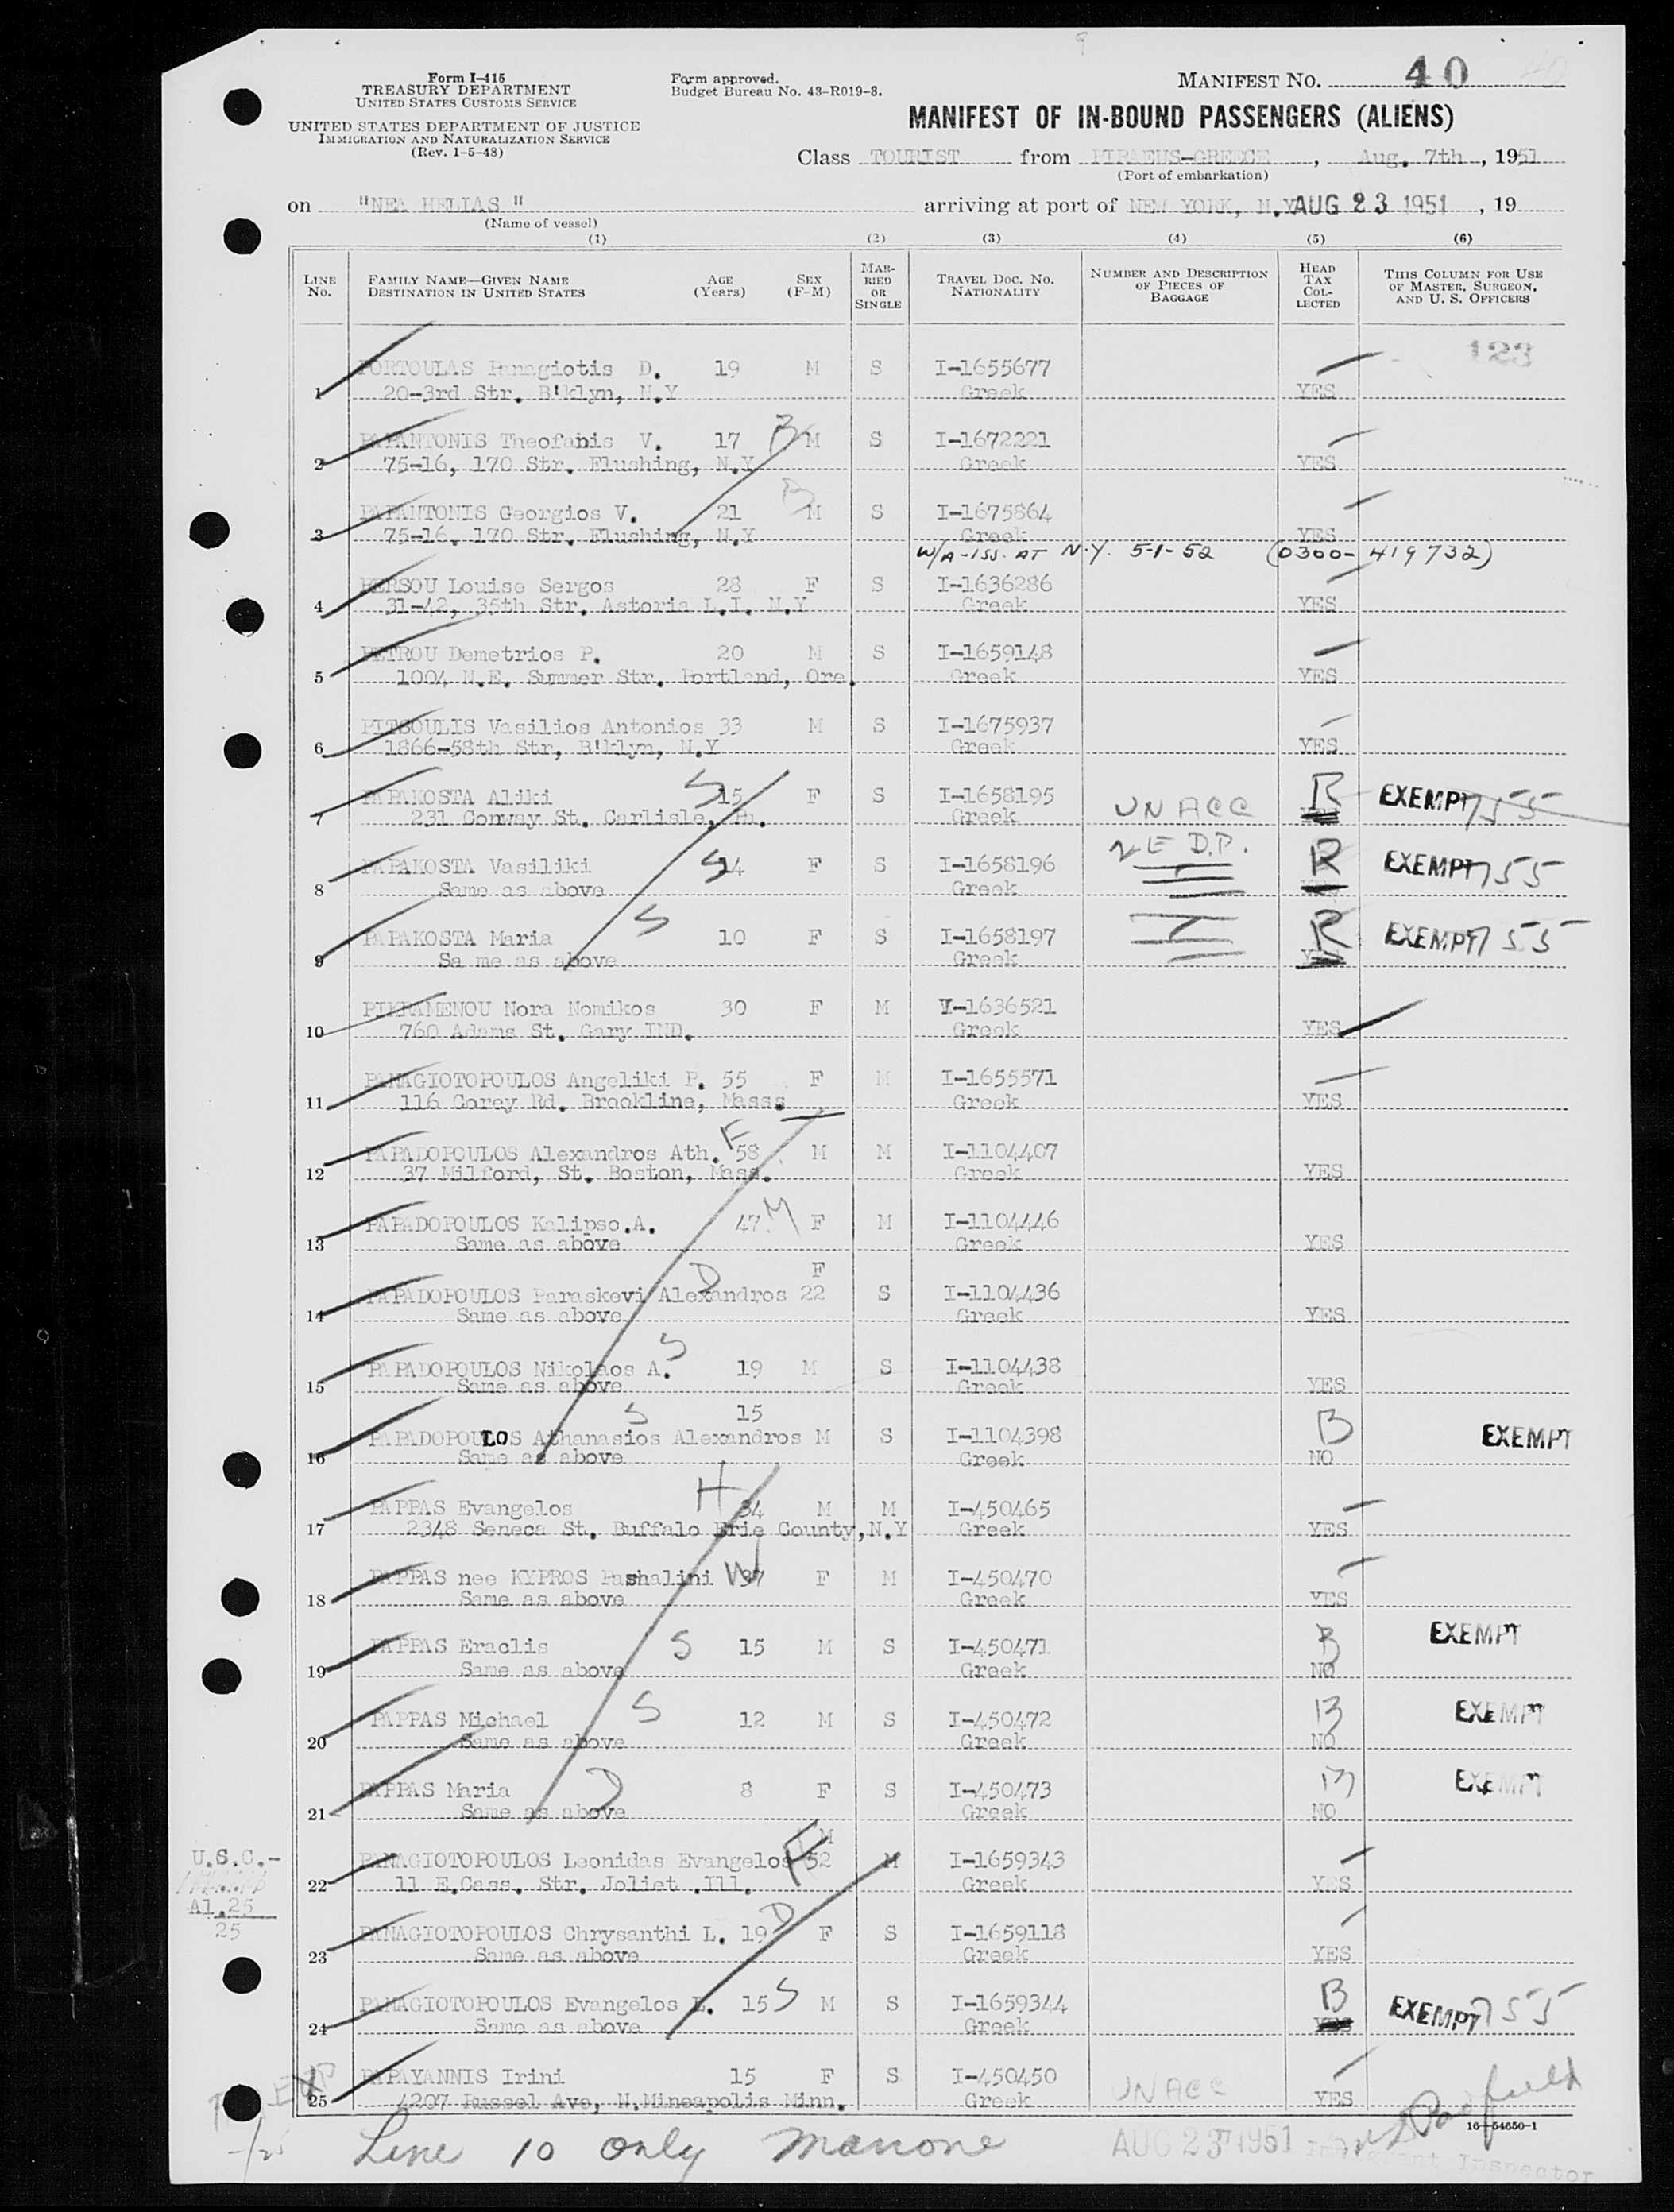 Form I-415
TREASURY DEPARTMENT
UNITED STATES CUSTOMS SERVICE
UNITED STATES DEPARTMENT OF JUSTICE
IMMIGRATION AND NATURALIZATION SERVICE
(Rev. 1-5-48)
Form approved.
Budget Bureau No. 43-R019-8.
MANIFEST NO. 40
MANIFEST OF IN-BOUND PASSENGERS (ALIENS)
Class TOURIST from PIRAEUS-GREECE, Aug. 7th, 1951
(Port of embarkation)
on "NEA HELLAS" arriving at port of NEW YORK, N.Y. AUG 23 1951, 19
(Name of vessel)
(1) (2) (3) (4) (5) (6)
LINE No. FAMILY NAME—GIVEN NAME DESTINATION IN UNITED STATES AGE (Years) SEX (F-M) MARRIED OR SINGLE TRAVEL DOC. NO. NATIONALITY NUMBER AND DESCRIPTION OF PIECES OF BAGGAGE HEAD TAX COLLECTED THIS COLUMN FOR USE OF MASTER, SURGEON, AND U. S. OFFICERS
123
PORTOULAS Panagiotis D. 19 M S I-1655677
1 20-3rd Str. B'klyn, N.Y Greek YES
PAPANTONIS Theofanis V. 17 B M S I-1672221
2 75-16, 170 Str. Flushing, N.Y Greek YES
PAPANTONIS Georgios V. 21 B M S I-1675864
3 75-16. 170 Str. Flushing, N.Y Greek YES
W/A-ISS. AT N.Y. 5-1-52 (0300-419732)
PERSOU Louise Sergos 28 F S I-1636286
4 31-42, 35th Str. Astoria L.I. N.Y Greek YES
PETROU Demetrios P. 20 M S I-1659148
5 1004 N.E. Summer Str. Portland, Ore. Greek YES
PITSOULIS Vasilios Antonios 33 M S I-1675937
6 1866-58th Str, B'klyn, N.Y Greek YES
PAPAKOSTA Aliki S 15 F S I-1658195 UNACC R EXEMPT 755
7 231 Conway St. Carlisle, Pa. Greek YES
PAPAKOSTA Vasiliki S 14 F S I-1658196 D.P. R EXEMPT 755
8 Same as above Greek
PAPAKOSTA Maria S 10 F S I-1658197 R EXEMPT 755
9 Sa me as above Greek
PIKRAMENOU Nora Nomikos 30 F M V-1636521
10 760 Adams St. Gary IND. Greek YES
PANAGIOTOPOULOS Angeliki P. 55 F M I-1655571
11 116 Corey Rd. Brookline, Masss Greek YES
PAPADOPOULOS Alexandros Ath. F 58 M M I-1104407
12 37 Milford, St. Boston, Mass. Greek YES
PAPADOPOULOS Kalipso.A. 47 M F M I-1104446
13 Same as above Greek YES
F
PAPADOPOULOS Paraskevi Alexandros D 22 S I-1104436
14 Same as above Greek YES
PAPADOPOULOS Nikolaos A. S 19 M S I-1104438
15 Same as above Greek YES
S 15
PAPADOPOULOS Athanasios Alexandros M S I-1104398 B EXEMPT
16 Same as above Greek NO
PAPPAS Evangelos H 34 M M I-450465
17 2348 Seneca St. Buffalo Erie County, N.Y Greek YES
PAPPAS nee KYPROS Pashalini W 37 F M I-450470
18 Same as above Greek YES
PAPPAS Eraclis S 15 M S I-450471 B EXEMPT
19 Same as above Greek NO
PAPPAS Michael S 12 M S I-450472 B EXEMPT
20 Same as above Greek NO
PAPPAS Maria D 8 F S I-450473 B EXEMPT
21 Same as above Greek NO
M
U.S.C.-
PANAGIOTOPOULOS Leonidas Evangelos F 52 M I-1659343
22 11 E.Cass. Str. Joliet .Ill. Greek YES
Al.25
25
PANAGIOTOPOULOS Chrysanthi L. 19 D F S I-1659118
23 Same as above Greek YES
PANAGIOTOPOULOS Evangelos L. 15 S M S I-1659344 B EXEMPT 755
24 Same as above Greek YES
PAPAYANNIS Irini 15 F S I-450450 UNACC
25 4207 Russel Ave, N.Mineapolis Minn. Greek YES
16—54650-1
Line 10 only
AUG 23 1951
Immigrant Inspector